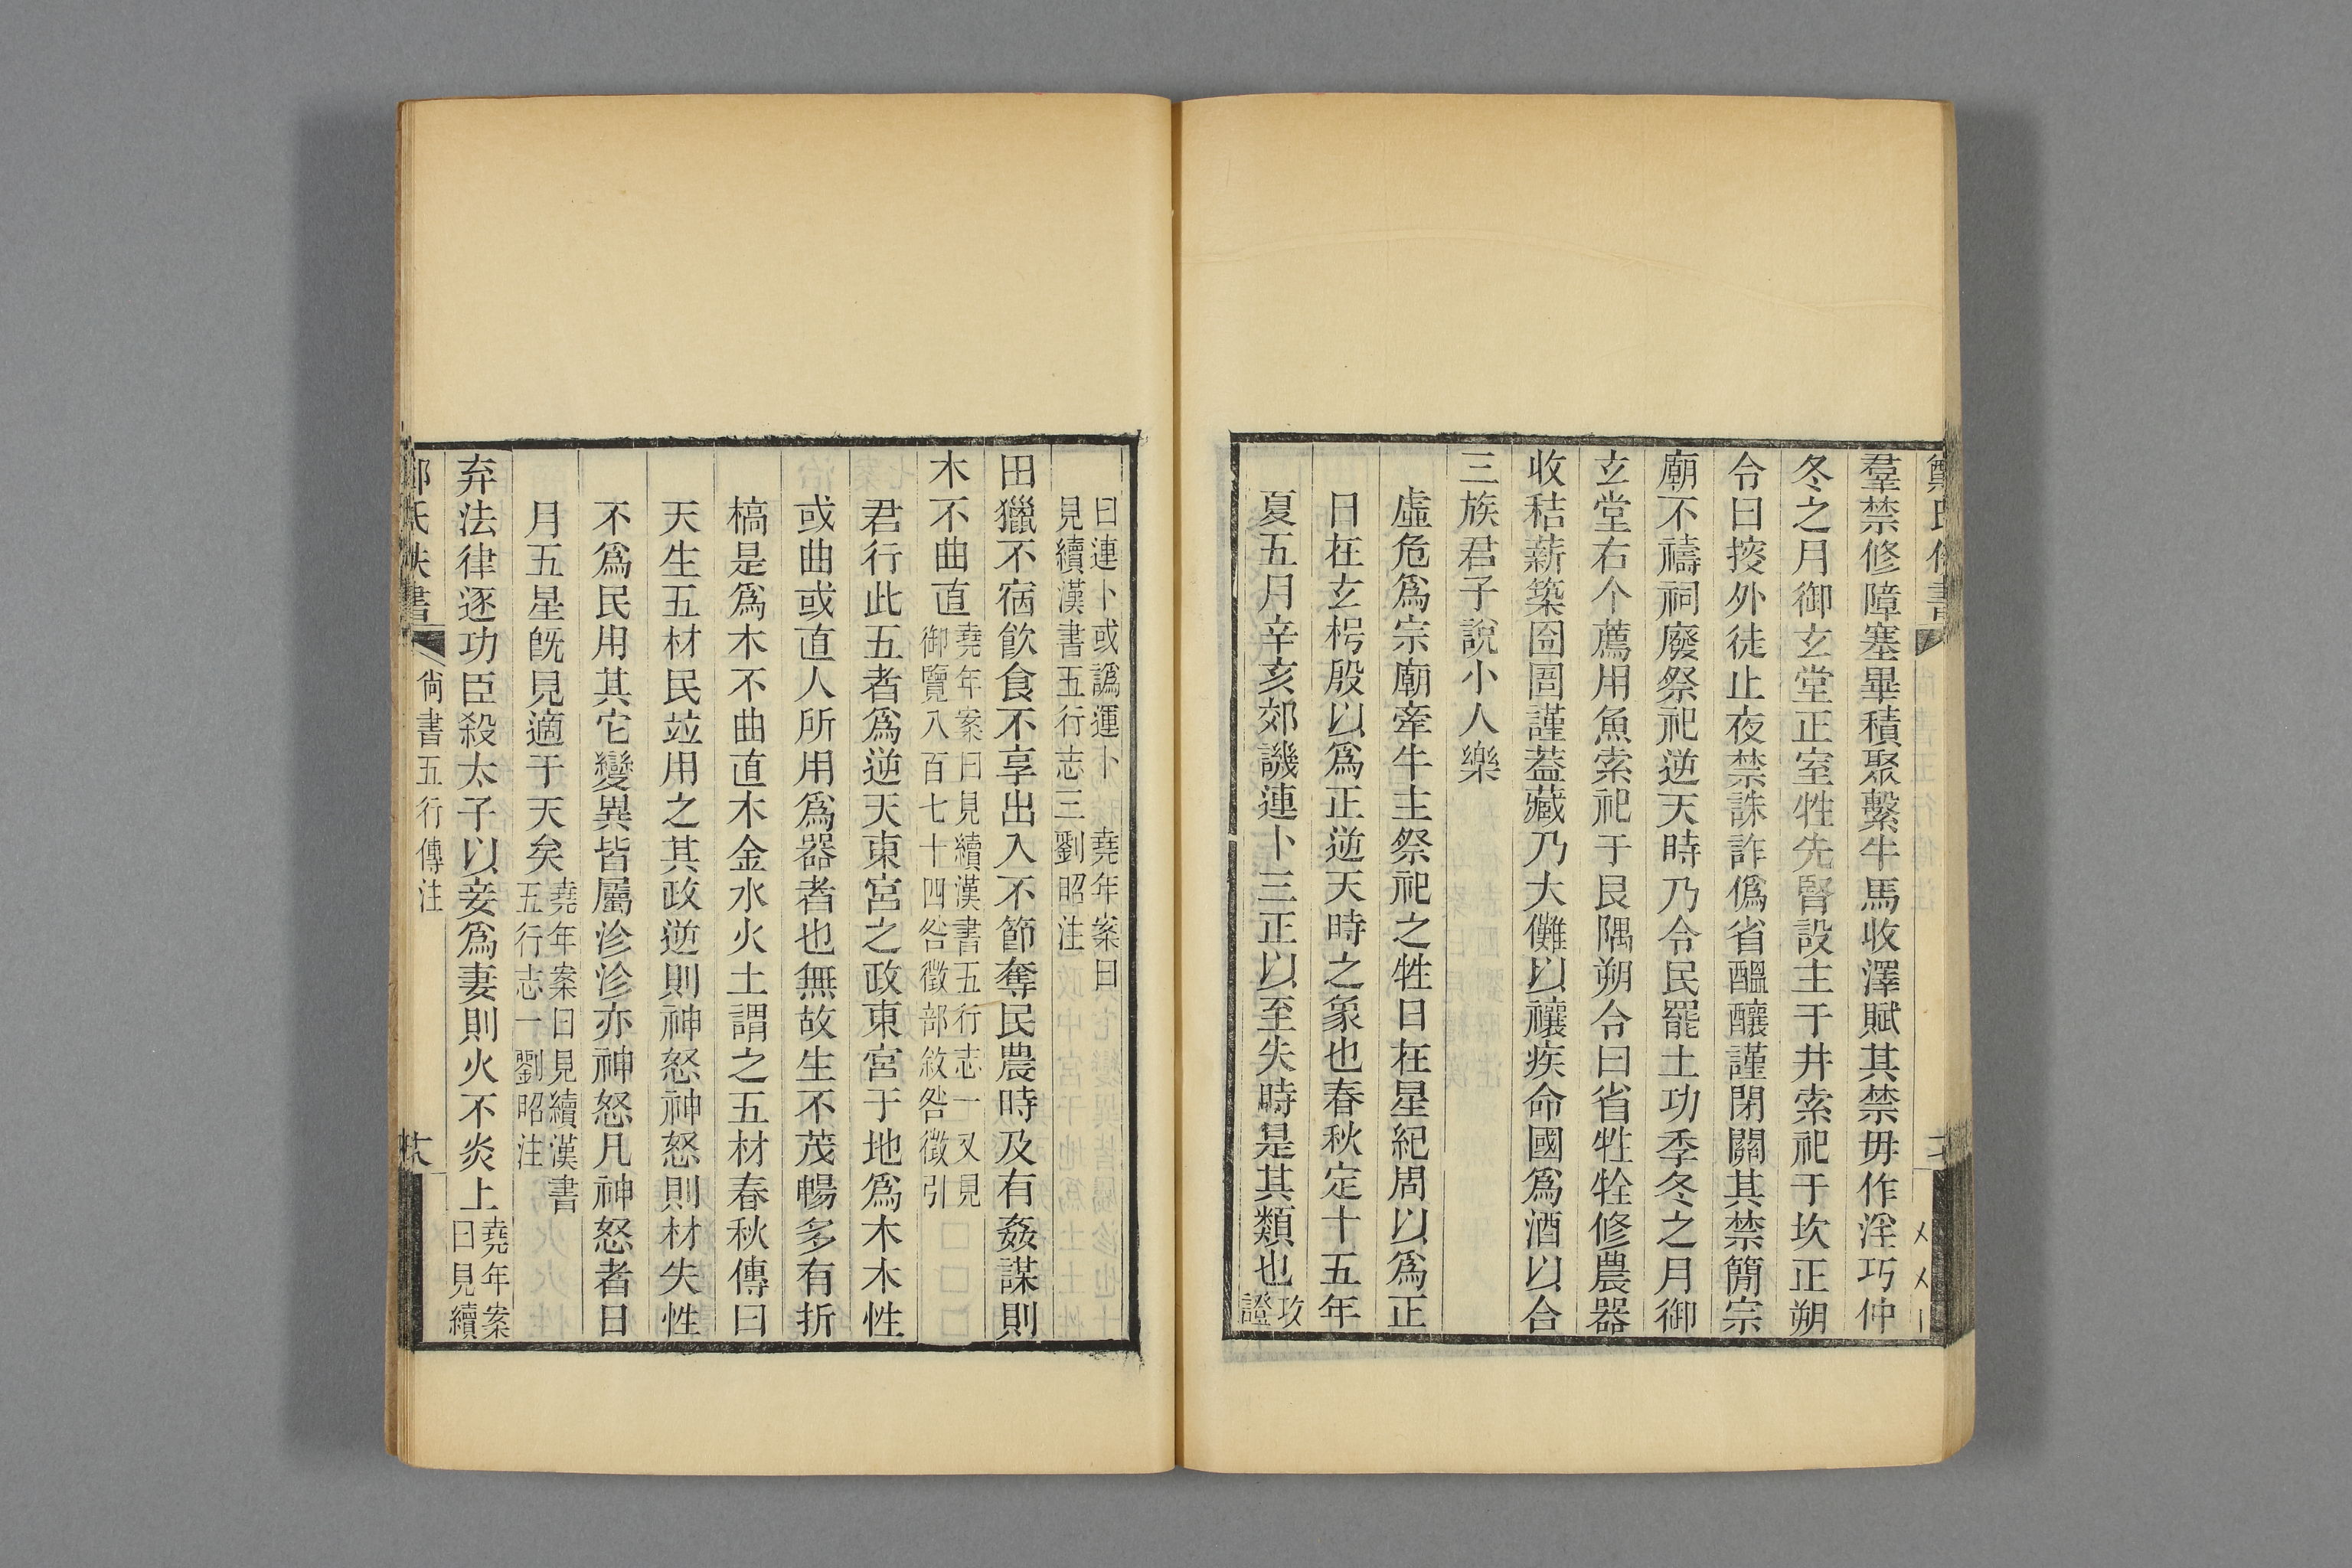 羣禁修障塞畢積聚繫牛馬收澤賦其禁毋作淫巧仲
冬之月御玄堂正室牲先腎設主于井索祀于坎正朔
令曰按外徒止夜禁誅詐僞省醞釀謹閉關其禁簡宗
廟不禱祠廢祭祀逆天時乃令民罷土功季冬之月御
玄堂右个薦用魚索祀于艮隅朔令曰省牲牷修農器
收秸薪築囹圄謹蓋藏乃大儺以禳疾命國爲酒以合
三族君子說小人樂
虛危爲宗廟牽牛主祭祀之牲日在星紀周以爲正
日在玄枵殷以爲正逆天時之象也春秋定十五年
夏五月辛亥郊譏連卜三正以至失時是其類也攷
證
曰連卜或譌運卜 堯年案曰
見續漢書五行志三劉昭注
田獵不宿飲食不享出入不節奪民農時及有姦謀則
木不曲直堯年案曰見續漢書五行志一又見
御覽八百七十四咎徵部敘咎徵引
君行此五者爲逆天東宮之政東宮于地爲木木性
或曲或直人所用爲器者也無故生不茂暢多有折
槁是爲木不曲直木金水火土謂之五材春秋傳曰
天生五材民竝用之其政逆則神怒神怒則材失性
不爲民用其它變異皆屬沴沴亦神怒凡神怒者日
月五星旣見適于天矣堯年案曰見續漢書
五行志一劉昭注
弃法律逐功臣殺太子以妾爲妻則火不炎上堯年案
曰見續
氏佚書 尙書五行傳注